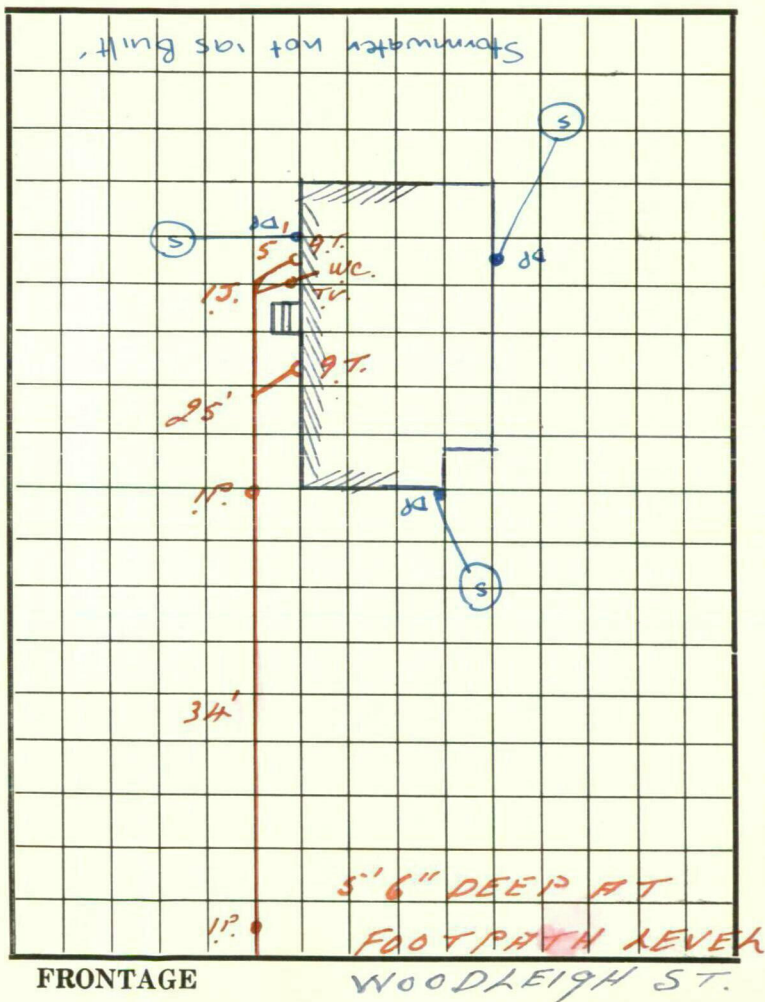 Stormwater not 'as Built'
S
S
DP
5
G.T.
W.C.
T.V.
I.J.
DP
G.T.
25'
I.P.
DP
S
34'
5' 6" DEEP AT
I.P.
FOOTPATH LEVEL
FRONTAGE
WOODLEIGH ST.